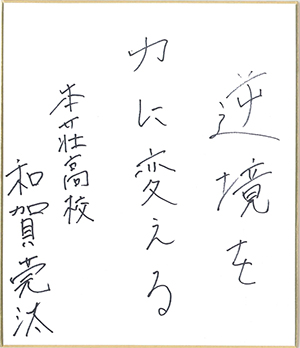 逆境を
力に変える
本荘高校
和賀莞汰